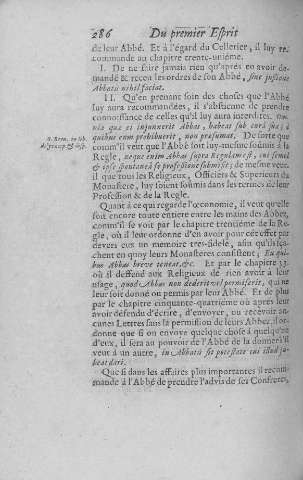 286 Du premier Esprit
de leur Abbé. Et à l'égard du Cellerier, il luy re-
commande au chapitre trente-uniéme.
I. De ne faire jamais rien qu'aprés en avoir de-
mandé & receu les ordres de son Abbé, sine jussione
Abbatis nihil faciat.
II. Qu'en prenant soin des choses que l'Abbé
luy aura recommandées, il s'abstienne de prendre
connoissance de celles qu'il luy aura interdites, om-
nia quæ ei injunxerit Abbas, habeat sub cura sua; à
quibus eum prohibuerit, non præsumat. De sorte que
comm'il veut que l'Abbé soit luy-mesme soûmis à la
Regle, neque enim Abbas supra Regulam est, cui semel
& ipse spontanea se professione submisit; de mesme veut
il que tous les Religieux, Officiers & Superieurs du
Monastere, luy soient soûmis dans les termes de leur
Profession & de la Regle.
Quant à ce qui regarde l'œconomie, il veut qu'elle
soit encore toute entiere entre les mains des Abbez,
comm'il se voit par le chapitre trentiéme de la Re-
gle, où il leur ordonne d'en avoir pour cét effet par
devers eux un memoire tres-fidele, afin qu'ils sça-
chent en quoy leurs Monasteres consistent; Ex qui-
bus Abbas breve teneat, &c. Et par le chapitre 33.
où il deffend aux Religieux de rien avoir à leur
usage, quod Abbas non dederit vel permiserit, qui ne
leur soit donné ou permis par leur Abbé. Et de plus
par le chapitre cinquante-quatriéme où aprés leur
avoir defendu d'écrire, d'envoyer, ou recevoir au-
cunes Lettres sans la permission de leurs Abbez, il or-
donne que si on envoye quelque chose à quelqu'un
d'eux, il sera au pouvoir de l'Abbé de la donner s'il
veut à un autre, in Abbatis sit potestate cui illud ju-
beat dari.
Que si dans les affaires plus importantes il recom-
mande à l'Abbé de prendre l'advis de ses Confreres,